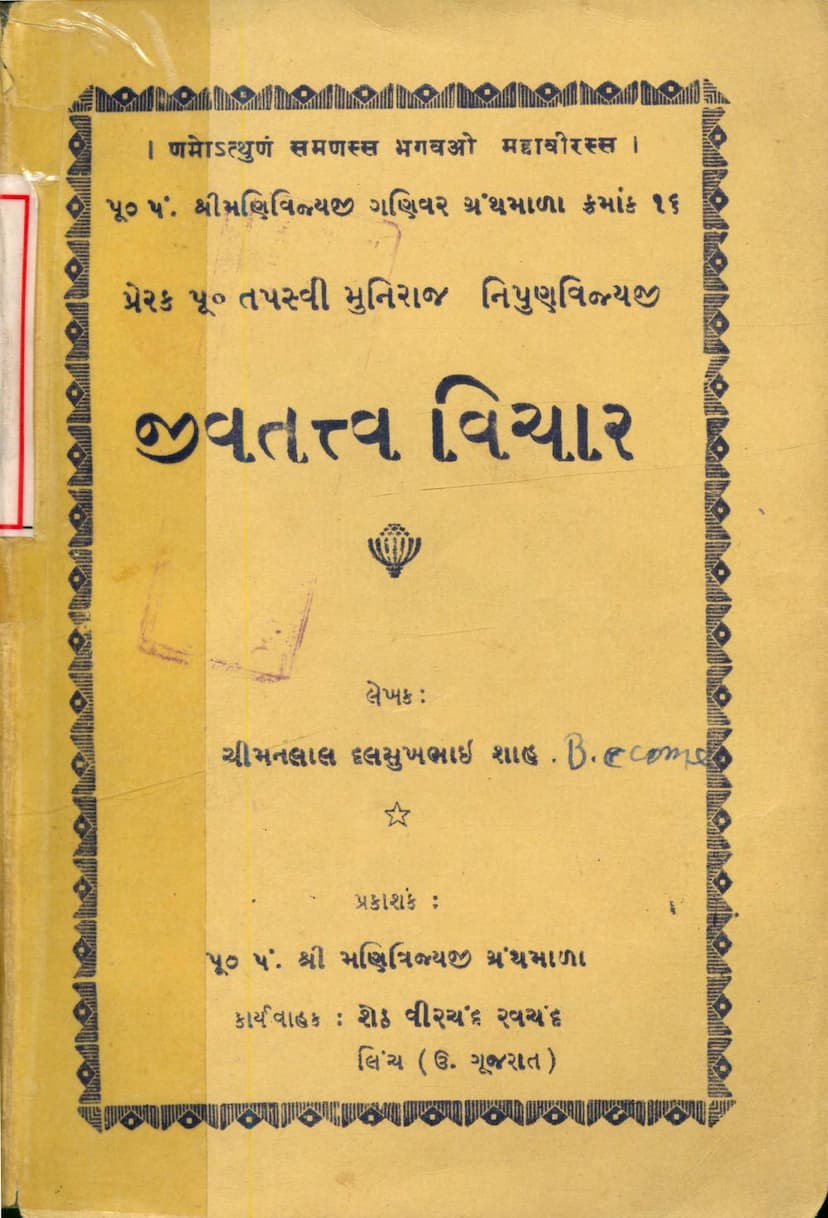 । ણમોઽત્થુણં સમણસ્સ ભગવઓ મહાવીરસ્સ ।
પૂ૦ પં. શ્રીમણિવિજયજી ગણિવર ગ્રંથમાળા ક્રમાંક ૧૬
પ્રેરક પૂ૦ તપસ્વી મુનિરાજ નિપુણવિજયજી
જીવતત્ત્વ વિચાર
લેખક :
ચીમનલાલ દલસુખભાઇ શાહ . B.
પ્રકાશક :
પૂ૦ પં. શ્રી મણિવિજયજી ગ્રંથમાળા
કાર્યવાહક : શેઠ વીરચંદ રવચંદ
લિંચ ( ઉ. ગૂજરાત )